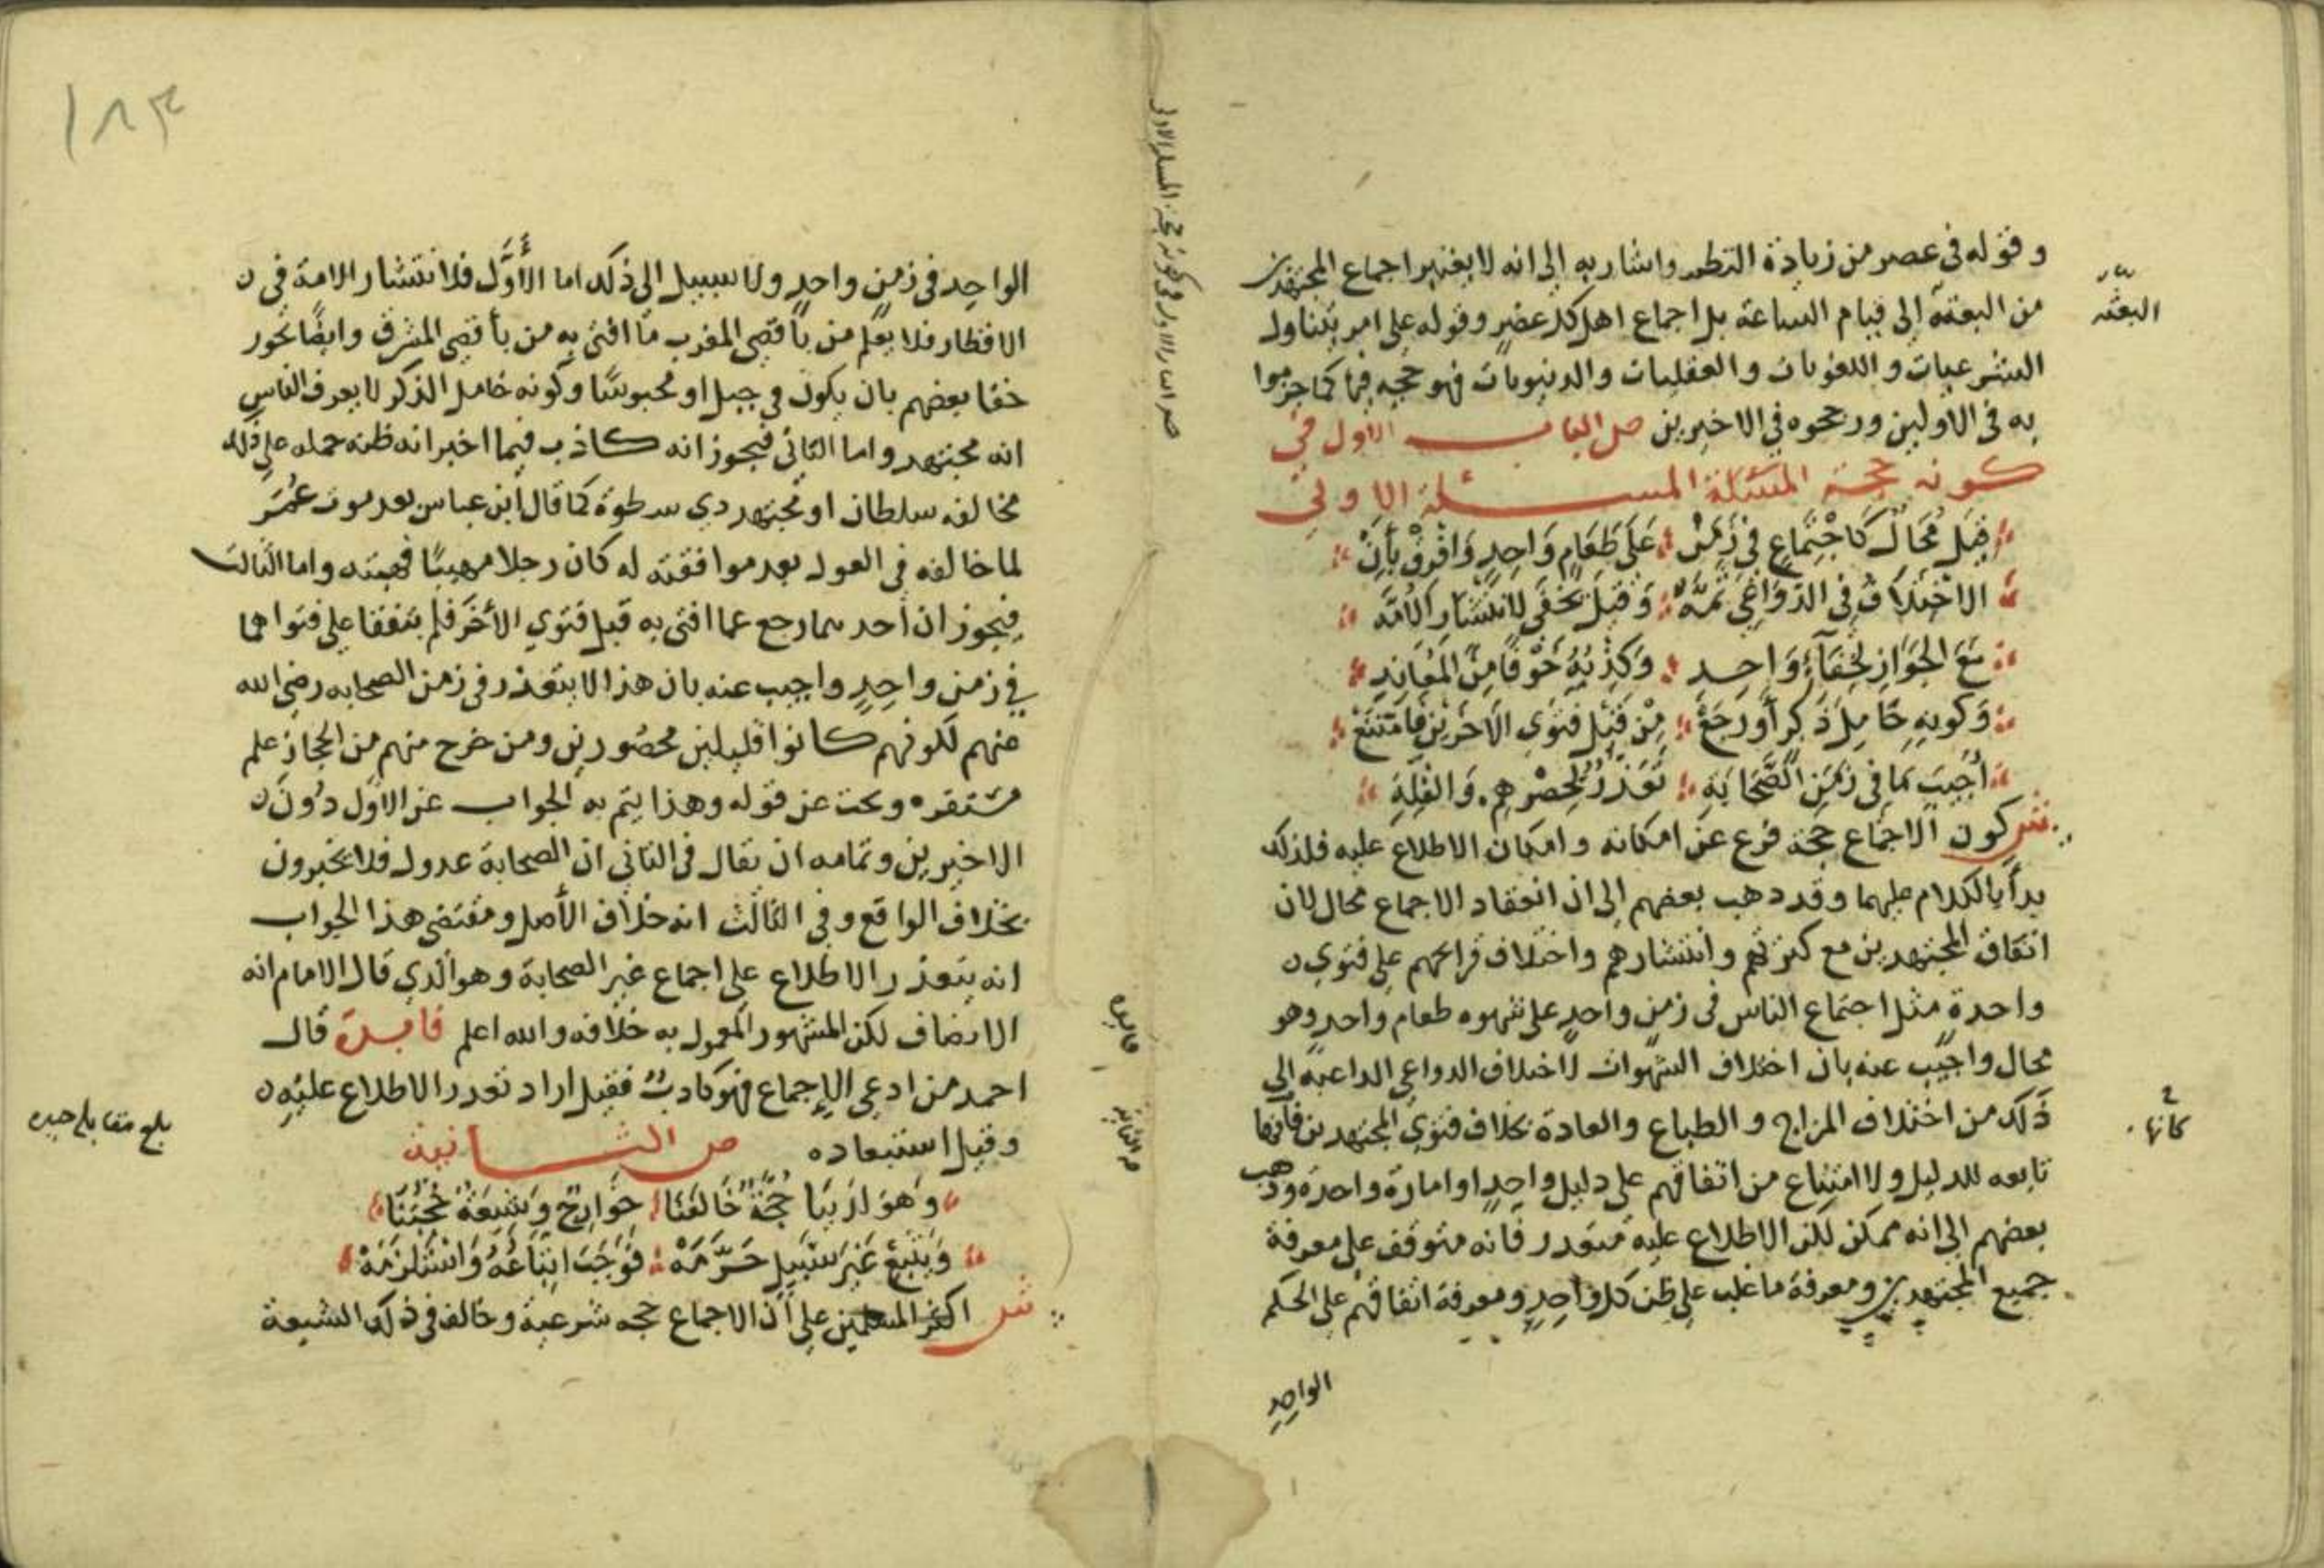 وقوله في عصر من زيادة النظم واشار به إلى انه لا يعتبر اجماع المجتهدين
من البعثة إلى قيام الساعة بل اجماع اهل كل عصر وقوله على امر يتناول
الشرعيات واللغويات والعقليات والدنيويات فهو حجة فيها كما جزموا
به في الاولين ورجحوه في الاخيرين ص الباب الاول في
كونه حجة المسئلة الاولى
قِيلَ مُحَالٌ كَاجْتِمَاعٍ فِي زَمَنْ عَلَى طَعَامٍ وَاحِدٍ وَافْرُقْ بِأَنْ
الاخْتِلَافُ فِي الدَّوَاعِي ثَمَّهْ وَقِيلَ يَخْفَى لِانْتِشَارِ الْأُمَّه
مَعَ الجَوَازِ لِخَفَاءِ وَاحِدِ وَكِذْبِهِ خَوْفًا مِنَ المُعَانِدِ
وَكَوْنِهِ خَامِلَ ذِكْرٍ أَوْ رَجَعْ مِنْ قَبْلِ فَتْوَى الآخَرِينَ فَامْتَنَعْ
أُجِيبَ مَا فِي زَمَنِ الصَّحَابَةِ تَعَذُّرٌ لِحَصْرِهِم وَالقِلَّةِ
ش كون الاجماع حجة فرع عن امكانه وامكان الاطلاع عليه فلذلك
بدأ بالكلام عليهما وقد ذهب بعضهم إلى ان انعقاد الاجماع محال لان
اتفاق المجتهدين مع كثرتهم وانتشارهم واختلاف قرائحهم على فتوى
واحدة مثل اجتماع الناس في زمن واحد على شهوه طعام واحد وهو
محال واجيب عنه بان اختلاف الشهوات لاختلاف الدواعي الداعية إلى
ذلك من اختلاف المزاج والطباع والعادة بخلاف فتوى المجتهدين فانها
تابعه للدليل ولا امتناع من اتفاقهم على دليل واحد او امارة واحدة وذهب
بعضهم إلى انه ممكن لكن الاطلاع عليه متعذر فانه متوقف على معرفة
جميع المجتهدين ومعرفة ما غلب على ظن كل واحد ومعرفة اتفاقهم على الحكم
الواحد
البعثه
كانها
١٨٣
الواحد في زمن واحد ولا سبيل الى ذلك اما الأَوَّل فلانتشار الامة في
الاقطار فلا يعلم من بأقصى المغرب ما افتى به من بأقصى المشرق وايضًا يجوز
خفا بعضهم بان يكون في جبل او محبوسًا وكونه خامل الذكر لا يعرف الناس
انه مجتهد واما الثاني فيجوز انه كاذب فيما اخبر انه ظنه حمله على ذلك
مخالفه سلطان او مجتهد ذي سطوة كما قال ابن عباس بعد موت عُمَر
لما خالفه في العول بعد موافقته له كان رجلا مهيبًا فهبته واما الثالث
فيجوز ان احدهما رجع عما افتى به قبل فتوي الأخر فلم يتفقا على فتواهما
في زمن واحد واجيب عنه بان هذا لا يتعذر في زمن الصحابه رضي الله
عنهم لكونهم كانوا قليلين محصورين ومن خرج منهم من الحجاز علم
مستقره وبحث عن قوله وهذا يتم به الجواب عن الاول دون
الاخيرين وتمامه ان يقال في الثاني ان الصحابة عدول فلا يخبرون
بخلاف الواقع وفي الثالث انه خلاف الأصل ومقتضى هذا الجواب
انه يتعذر الاطلاع على اجماع غير الصحابة وهو الذي قال الامام انه
الانصاف لكن المشهور المعمول به خلافه والله اعلم فايدة قال
احمد من ادعى الإجماع فهو كاذب فقيل اراد تعذر الاطلاع عليه
وقيل استبعاده ص الثانية
وَهْوَ لَدَيْنَا حُجَّةٌ خَالَفَنَا خَوَارِجٌ وَشِيعَةٌ حُجَّتُنَا
وَيَتَّبِعْ غَيْرَ سَبِيلِ حَرَّمَهْ فَوَجَبَ اتِّبَاعُهُ وَاسْتَلْزَمَهْ
ش اكثر المسلمين على أن الاجماع حجه شرعية وخالف في ذلك الشيعة
فايدة